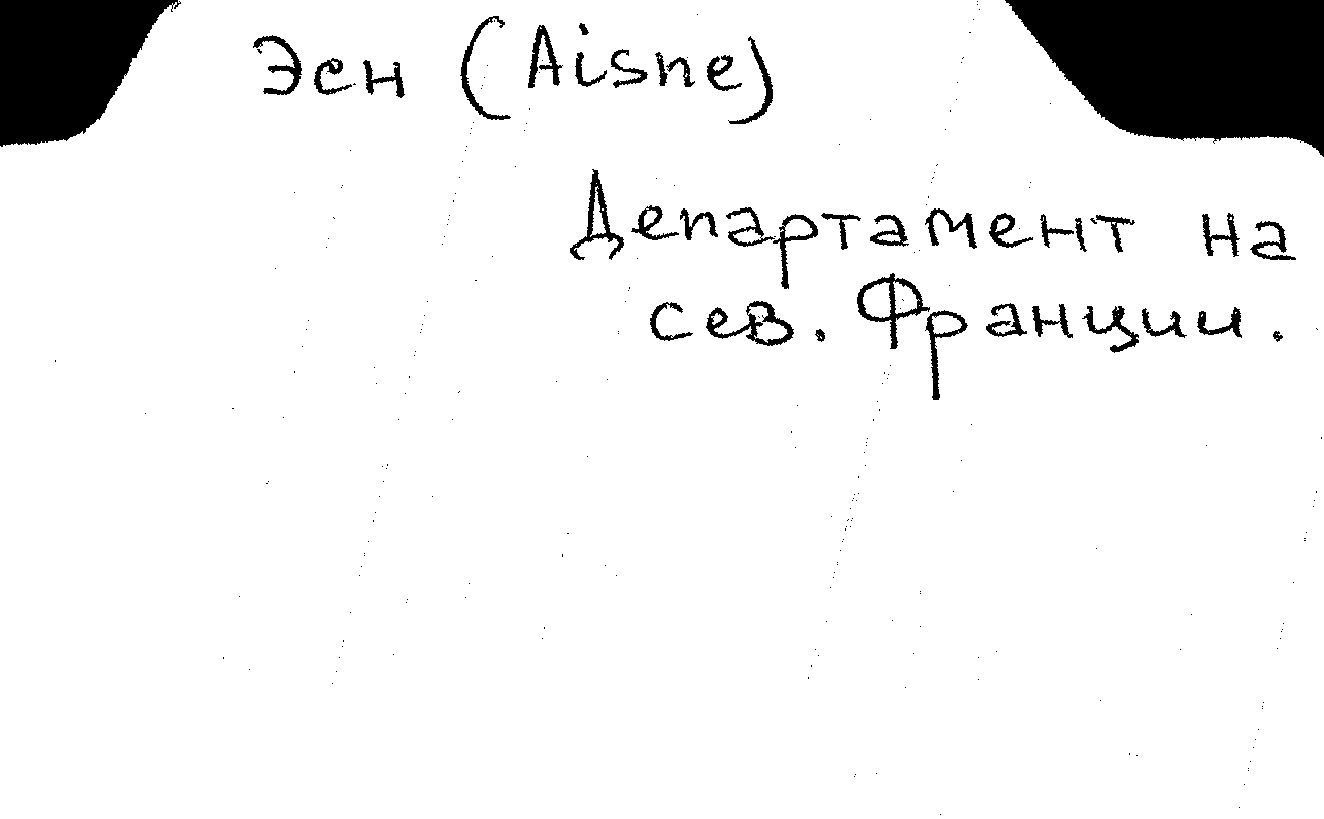 Эсн (Aisne)
Департамент на
сев. Франции.